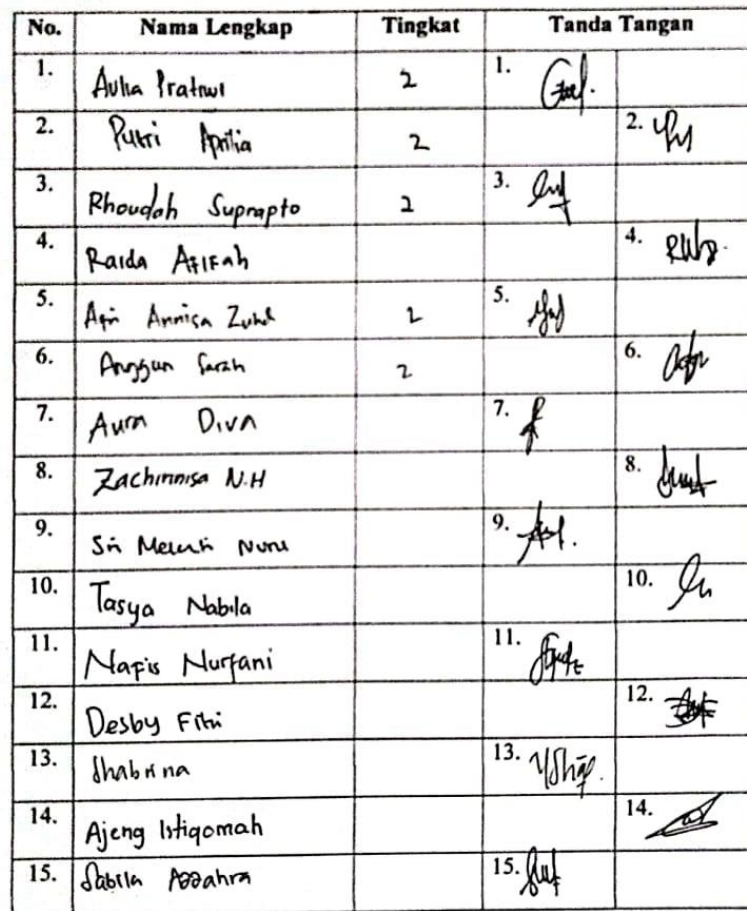 No. Nama Lengkap Tingkat Tanda Tangan
1. Aulia Pratiwi 2 1.
2. Putri Aprilia 2 2.
3. Rhoudah Suprapto 2 3.
4. Raida Afifah 4.
5. Annisa 2 5.
6. Anggun Sarah 2 6.
7. Aura Diva 7.
8. Zachinnisa N.H 8.
9. Sri Melati 9.
10. Tasya Nabila 10.
11. Nafis Nurfani 11.
12. Desby Fitri 12.
13. Shabrina 13.
14. Ajeng Istiqomah 14.
15. Sabila Azzahra 15.